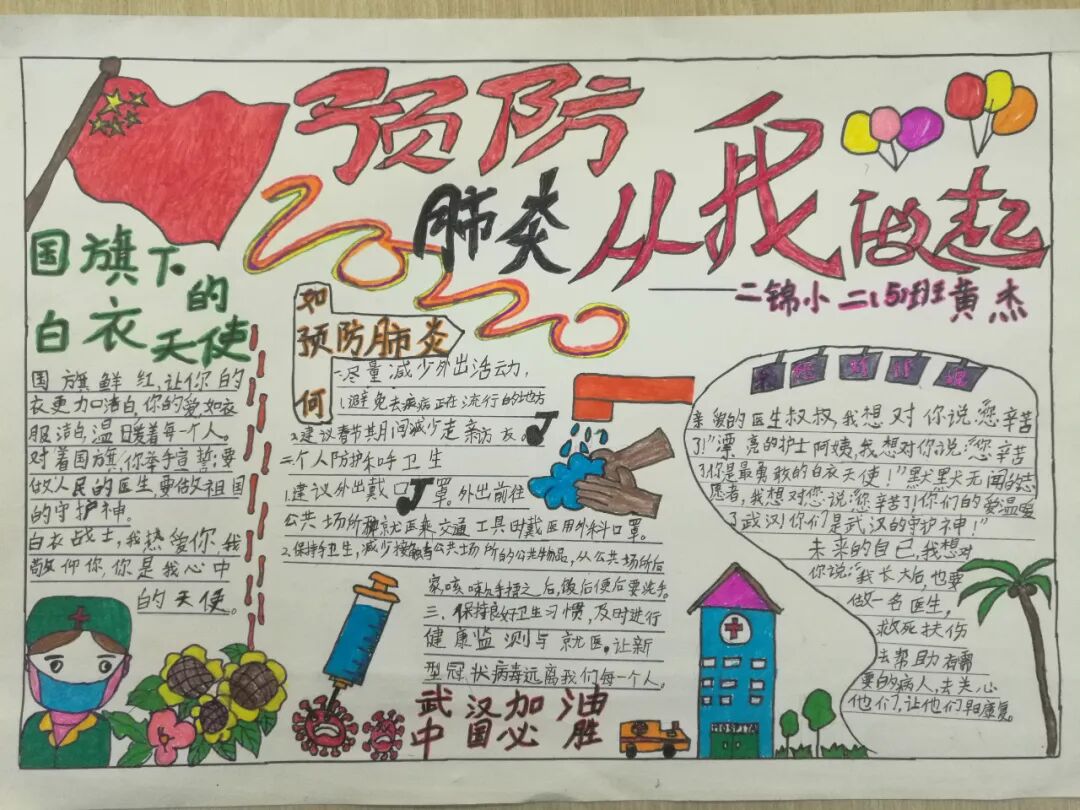 预防
肺炎
从我做起
2020
二锦小 二(5)班 黄杰
国旗下的
白衣天使
国旗鲜红,让你的
衣更加洁白,你的爱如衣
服洁白,温暖着每一个人。
对着国旗,你举手宣誓:要
做人民的医生,要做祖国
的守护神。
白衣战士,我热爱你,我
敬仰你,你是我心中
的天使。
如何
预防肺炎
一.尽量减少外出活动,
1.避免去疾病正在流行的地方
2.建议春节其月间减少走亲访友。
二.个人防护和手卫生
1.建议外出戴口罩。外出前往
公共场所种就医乘交通工具时戴医用外科口罩。
2.保持手卫生,减少接触公共场所的公共物品,从公共场所后
家,咳嗽手捂之后,饭后便后要洗手。
三.保持良好卫生习惯,及时进行
健康监测与就医。让新
型冠状病毒远离我们每一个人。
武汉加油
中国必胜
亲爱的医生叔叔,我想对你说:"您辛苦
了!"漂亮的护士阿姨,我想对你说:"您辛苦
了,你是最勇敢的白衣天使!"默默无闻的志
愿者,我想对您说:"您辛苦了,你们的爱温暖
了武汉!你们是武汉的守护神!"
未来的自己,我想对
你说:"我长大后,也要
做一名医生,
救死扶伤
去帮助有需
要的病人,去关心
他们,让他们早日康复。
HOSPITAL